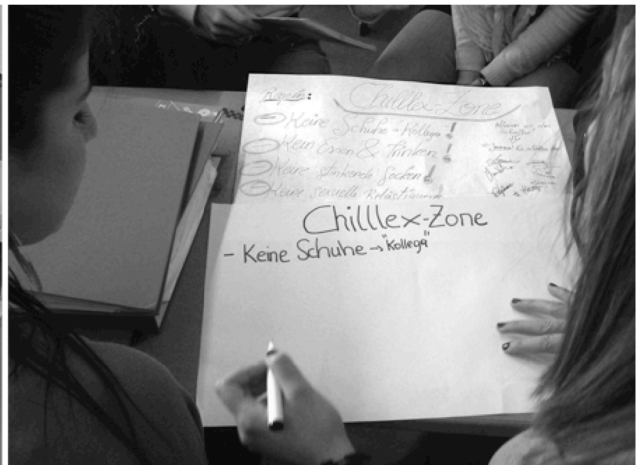 Regeln: Chilllex-Zone
Keine Schuhe → Kollega !
Kein Essen & Trinken !
Keine stinkende Socken !
Keine sexuelle Belästigung
Chilllex-Zone
- Keine Schuhe → "Kollega"